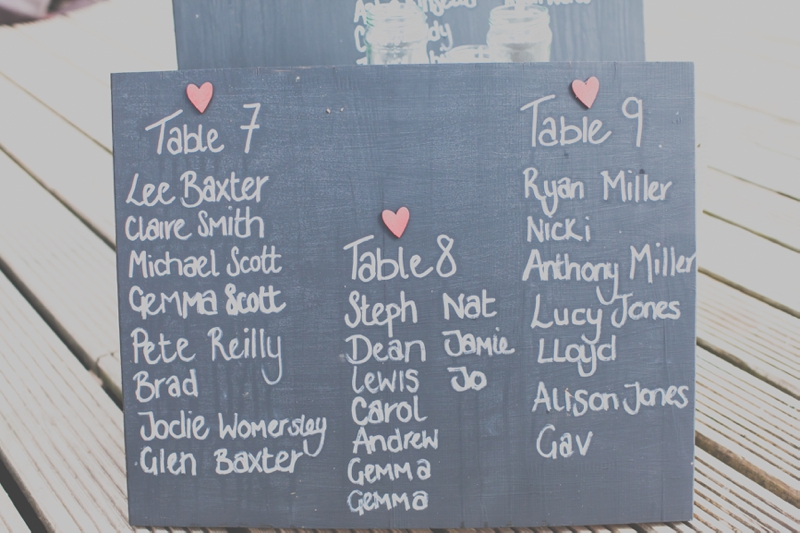 Table 7
Lee Baxter
Claire Smith
Michael Scott
Gemma Scott
Pete Reilly
Brad
Jodie Womersley
Glen Baxter
Table 8
Steph Nat
Dean Jamie
Lewis Jo
Carol
Andrew
Gemma
Gemma
Table 9
Ryan Miller
Nicki
Anthony Miller
Lucy Jones
Lloyd
Alison Jones
Gav